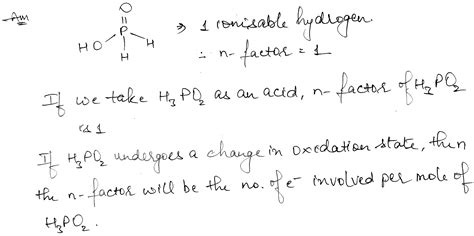 Ans
O
HO P H
H
⇒ 1 ionisable hydrogen
∴ n-factor = 1
If we take H₃PO₂ as an acid, n-factor of H₃PO₂
is 1
If H₃PO₂ undergoes a change in oxidation state, then
the n-factor will be the no. of e⁻ involved per mole of
H₃PO₂.